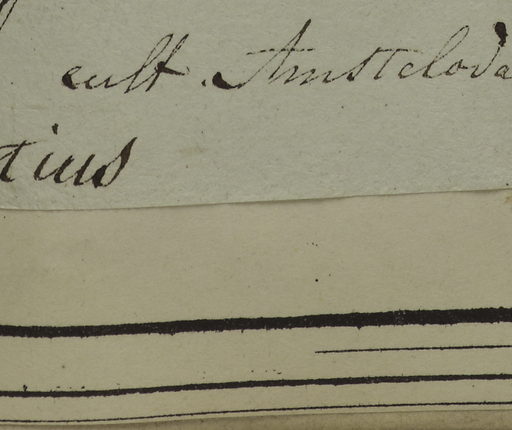 cult. Amsteloda
tius